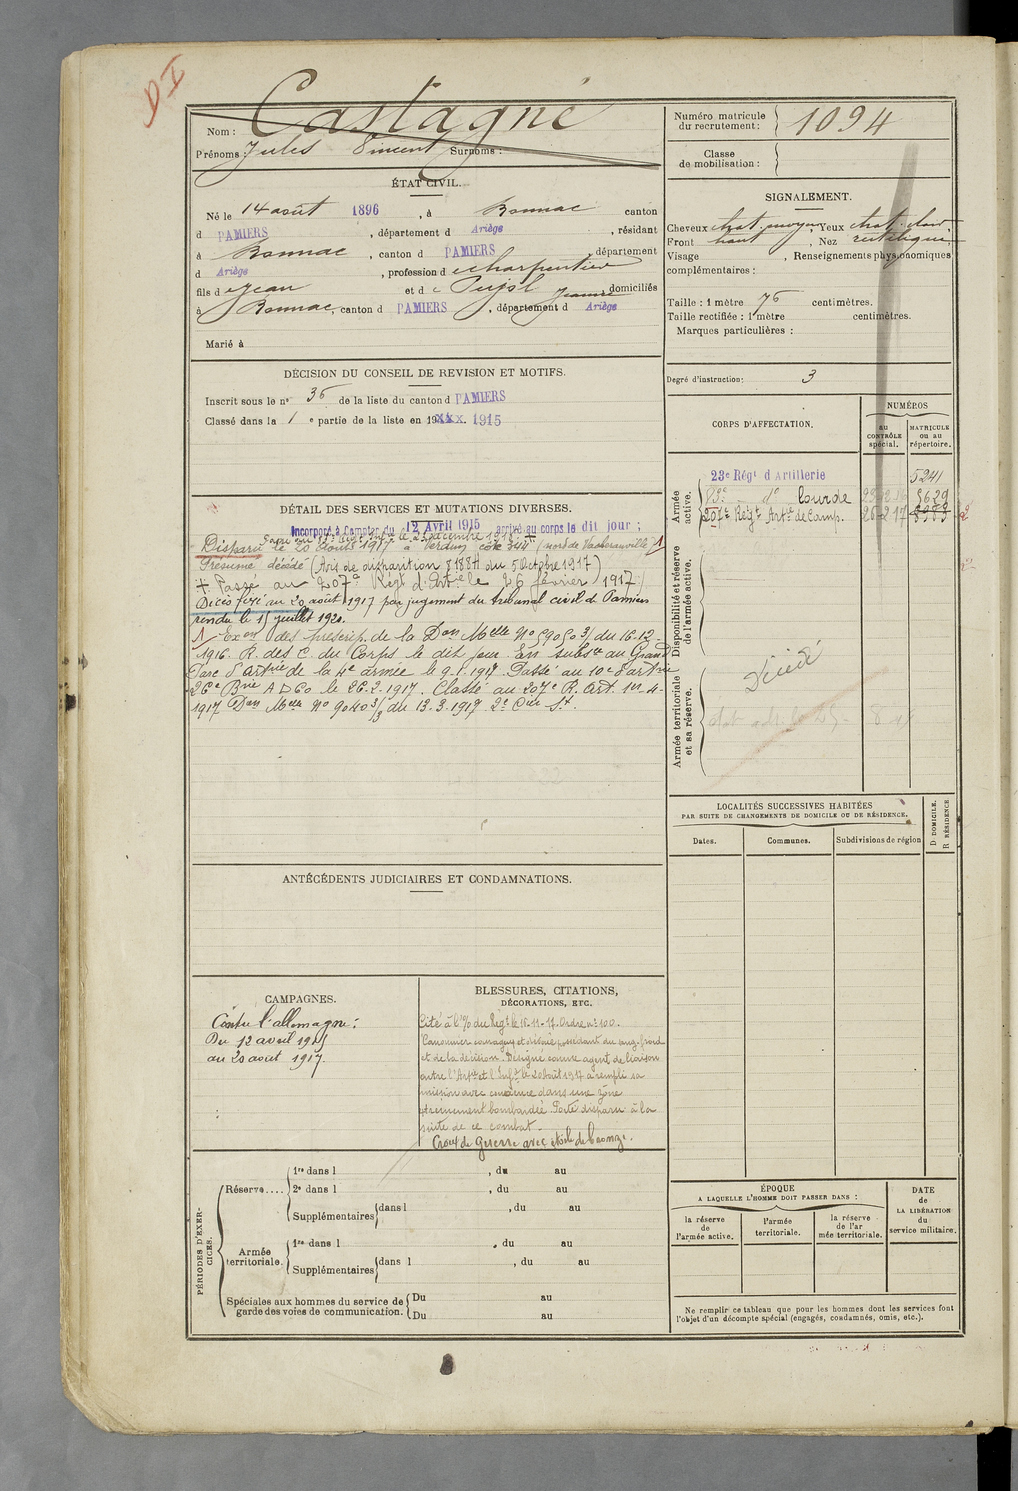 DI
Nom : Castagné
Prénoms : Jules Vincent Surnoms :
Numéro matricule
du recrutement : 1094
Classe
de mobilisation :
ÉTAT CIVIL.
Né le 14 août 1896, à Bonnac canton
d PAMIERS, département d Ariège, résidant
à Bonnac, canton d PAMIERS département
d Ariège, profession de charpentier
fils de Jean et de Pujol Jeanne domiciliés
à Bonnac, canton d PAMIERS, département d Ariège
Marié à
SIGNALEMENT.
Cheveux chat. moyen, Yeux chat. clair.
Front haut, Nez rectiligne
Visage , Renseignements physionomiques
complémentaires :
Taille : 1 mètre 76 centimètres.
Taille rectifiée : 1 mètre centimètres.
Marques particulières :
Degré d'instruction : 3
DÉCISION DU CONSEIL DE REVISION ET MOTIFS.
Inscrit sous le n° 36 de la liste du canton d PAMIERS
Classé dans la 1 e partie de la liste en 19xxx. 1915
CORPS D'AFFECTATION.
NUMÉROS
au
CONTRÔLE
spécial.
MATRICULE
ou au
répertoire.
Armée
active.
23e Régt d'Artillerie 5241
83e d° lourde 5629
207e Régt Artie de Camp. 26-2-17 8383
2
Disponibilité et réserve
de l'armée active.
Armée territoriale
et sa réserve.
Décédé
DÉTAIL DES SERVICES ET MUTATIONS DIVERSES.
Incorporé à compter du 12 Avril 1915 arrivé au corps le dit jour ;
Disparu le 20 Août 1917 à Verdun côte 344 (nord de Vacherauville) 1
Présumé décédé (Avis de disparition J 18871 du 5 Octobre 1917)
+ Passé au 207e Régt d'Artie le 26 février 1917.
Décès fixé au 20 août 1917 par jugement du tribunal civil de Pamiers
rendu le 15 juillet 1920.
1 Exon des prescrip. de la Don Melle N° 59050 3/ du 16-12-
1916. R. des C. du Corps le dit jour. En subsce au Grand
Parc d'Artrie de la 4e armée le 9-1-1917. Passé au 10e d'artrie
26e Brie A D 60 le 26-2-1917. Classé au 207e R. Art. 1er-4-
1917 Don Melle N° 9040 3/3 du 13-3-1917. 2e Cier St.
LOCALITÉS SUCCESSIVES HABITÉES
PAR SUITE DE CHANGEMENTS DE DOMICILE OU DE RÉSIDENCE.
Dates. Communes. Subdivisions de région
D. DOMICILE.
R. RÉSIDENCE
ANTÉCÉDENTS JUDICIAIRES ET CONDAMNATIONS.
CAMPAGNES.
Contre l'allemagne :
Du 12 avril 1915
au 20 août 1917.
BLESSURES, CITATIONS,
DÉCORATIONS, ETC.
Cité à l'O/ du Régt le 18-11-17. Ordre n° 100.
"Canonnier courageux et dévoué possédant du sang-froid
et de la décision. Désigné comme agent de liaison
entre l'Artie et l'Infie le 20 Août 1917 a rempli sa
mission avec conscience dans une zone
extrêmement bombardée. Porté disparu à la
suite de ce combat.
Croix de guerre avec étoile de bronze.
PÉRIODES D'EXER-
CICES.
Réserve....
1re dans l , du au
2e dans l , du au
Supplémentaires dans l , du au
Armée
territoriale.
1re dans l , du au
Supplémentaires dans l , du au
Spéciales aux hommes du service de
garde des voies de communication.
Du au
Du au
ÉPOQUE
A LAQUELLE L'HOMME DOIT PASSER DANS :
la réserve
de
l'armée active.
l'armée
territoriale.
la réserve
de l'ar
mée territoriale.
DATE
de
LA LIBÉRATION
du
service militaire.
Ne remplir ce tableau que pour les hommes dont les services font
l'objet d'un décompte spécial (engagés, condamnés, omis, etc.).